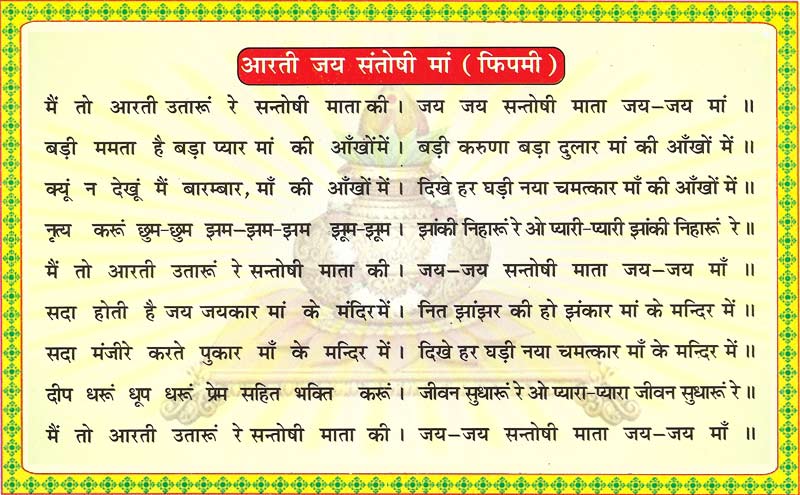 आरती जय संतोषी मां ( फिपमी )
मैं तो आरती उतारूं रे सन्तोषी माता की । जय जय सन्तोषी माता जय–जय मां ॥
बड़ी ममता है बड़ा प्यार मां की आँखोंमें । बड़ी करुणा बड़ा दुलार मां की आँखों में ॥
क्यूं न देखूं मैं बारम्बार, माँ की आँखोंमें । दिखे हर घड़ी नया चमत्कार माँ की आँखों में ॥
नृत्य करूं छुम-छुम झम–झम-झम झूम-झूम । झांकी निहारूं रे ओ प्यारी-प्यारी झांकी निहारूं रे ॥
मैं तो आरती उतारूं रे सन्तोषी माता की । जय–जय सन्तोषी माता जय–जय माँ ॥
सदा होती है जय जयकार मां के मंदिरमें । नित झांझर की हो झंकार मां के मन्दिर में ॥
सदा मंजीरे करते पुकार माँ के मन्दिर में । दिखे हर घड़ी नया चमत्कार माँ के मन्दिर में ॥
दीप धरूं धूप धरूं प्रेम सहित भक्ति करूं । जीवन सुधारूं रे ओ प्यारा-प्यारा जीवन सुधारूं रे ॥
मैं तो आरती उतारूं रे सन्तोषी माता की । जय–जय सन्तोषी माता जय–जय माँ ॥